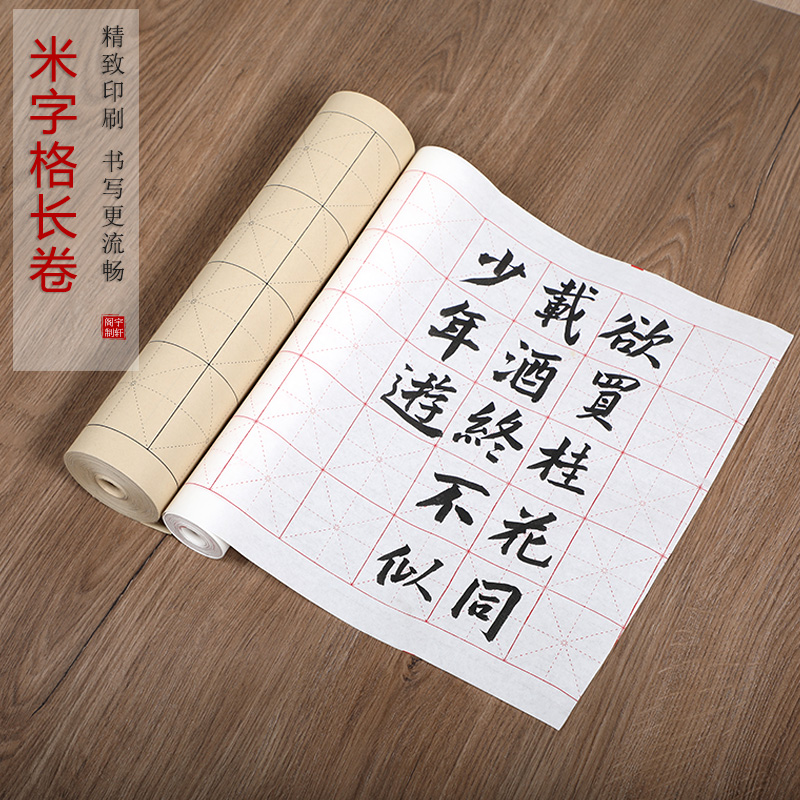 米字格长卷
精致印刷 书写更流畅
宇轩阁制
欲買桂花同
載酒終不似
少年遊